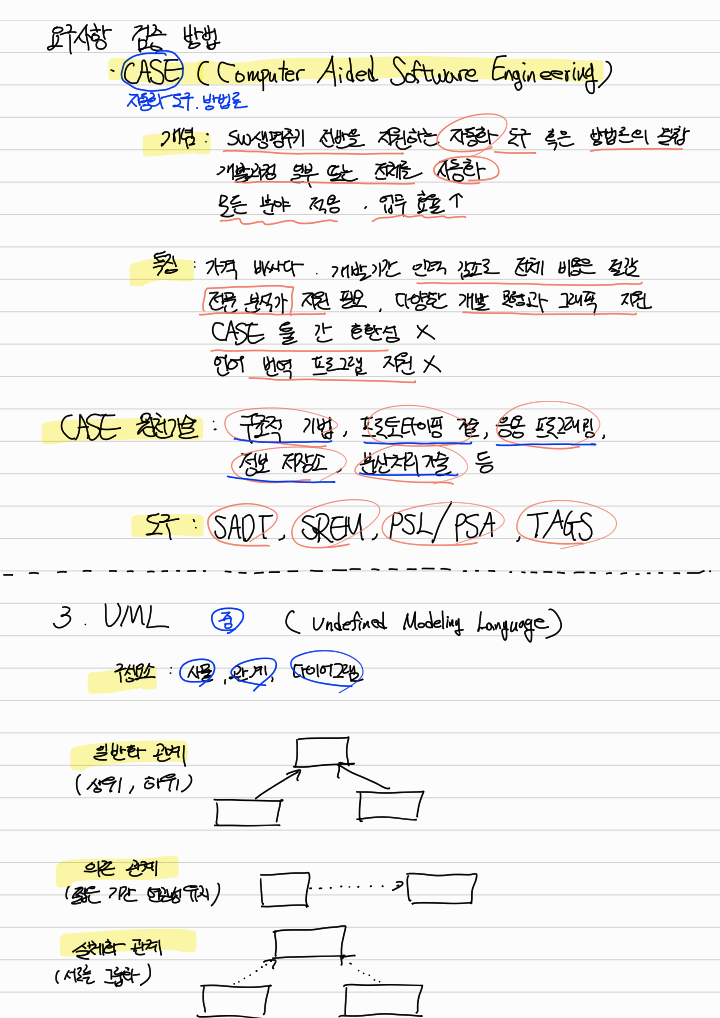 요구사항 검증 방법
· CASE (Computer Aided Software Engineering)
자동화 도구, 방법론
개념 : SW생명주기 전반을 지원하는 자동화 도구 혹은 방법론의 결합
개발과정 일부 또는 전체를 자동화
모든 분야 적용 , 업무 효율 ↑
특징 : 가격 비싸다 . 개발기간 인력 감소로 전체 비용은 절감
전문 분석가 지원 필요, 다양한 개발 모형과 그래픽 지원
CASE 툴 간 호환성 X
언어 번역 프로그램 지원 X
CASE 원천기술 : 구조적 기법, 프로토타이핑 기술, 응용 프로그래밍,
정보 저장소, 분산처리 기술 등
도구 : SADT, SREM, PSL/PSA, TAGS
3. UML 중 (Undefined Modeling Language)
구성요소 : 사물, 관계, 다이어그램
일반화 관계
(상위, 하위)
의존 관계
(짧은 기간 연관성 유지)
실체화 관계
(서로를 그룹화)